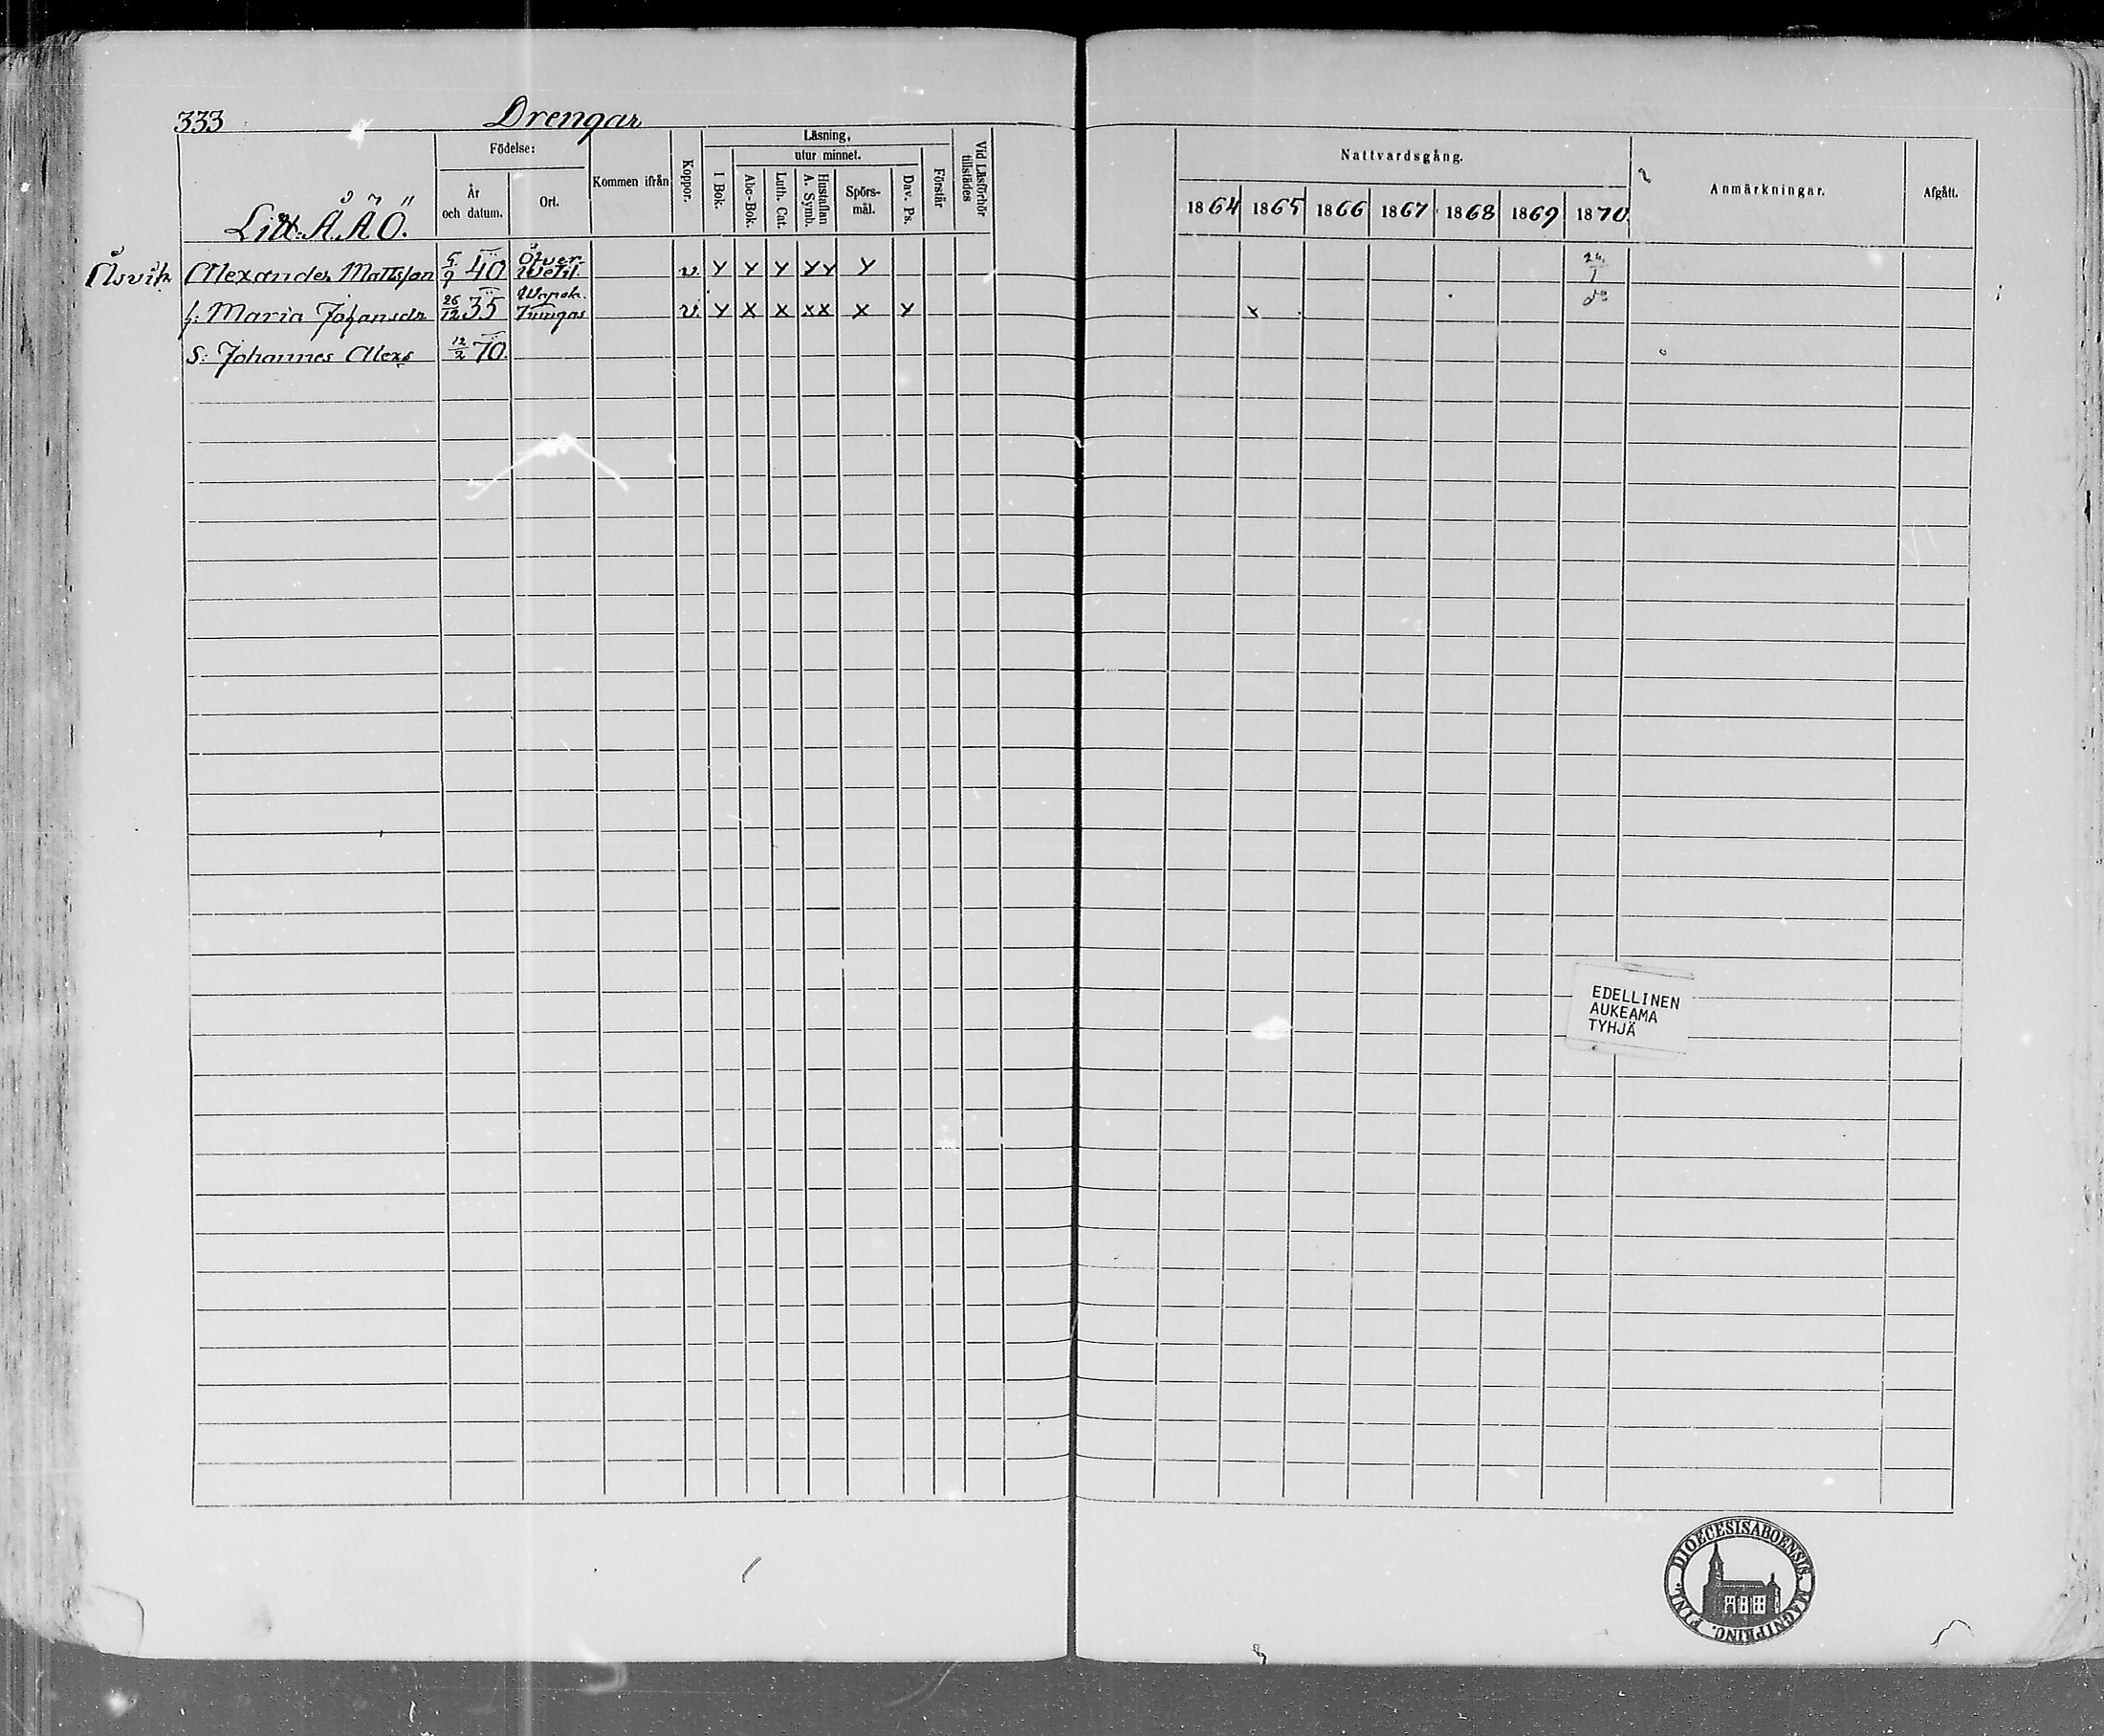 333 Drengar
Litt. Å Ä Ö.
Födelse:
År och datum.
Ort.
Kommen ifrån
Koppor.
Läsning,
I Bok.
utur minnet.
Abc-Bok.
Luth. Cat.
Hustaflan A. Symb.
Spörs-mål.
Dav. Ps.
Förstår
Vid Läsförhör tillstädes
Nattvardsgång.
1864 1865 1866 1867 1868 1869 1870
Anmärkningar.
Afgått.
Åsvik Alexander Mattsson 5/9 40 Öfver- v. Y Y Y YY Y 24/1
h: Maria Johansdr 26/12 35 v. Y X X XX X Y x do
S: Johannes Alexs 12/2 70
EDELLINEN
AUKEAMA
TYHJÄ
DIOECESIS ABOENSIS MAGNI PRINC. FINL.